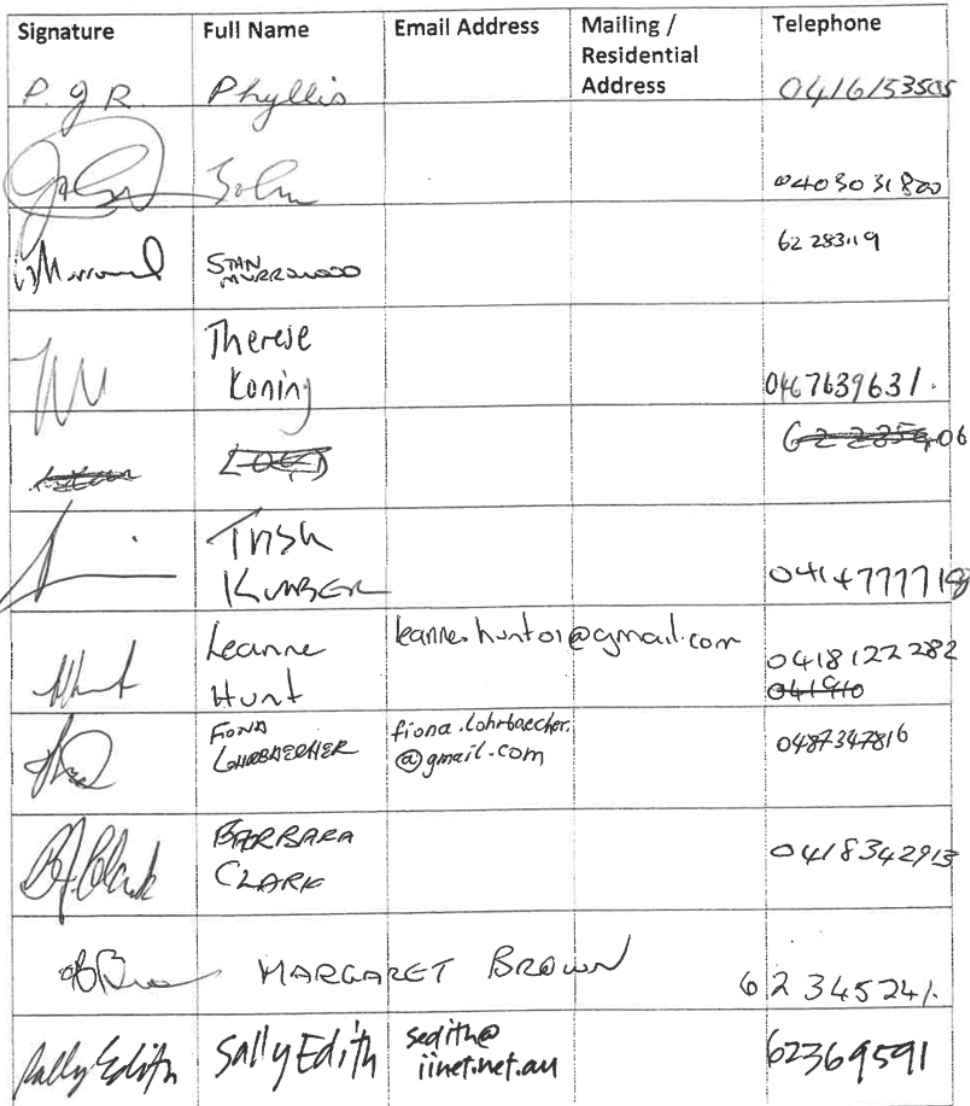 Signature Full Name Email Address Mailing / Residential Address Telephone
P. J R. Phyllis 0416153505
John 0403031820
STAN MURRAWOOD 62 283119
Therese Koning 0467639631.
Trish KUMBER
Leanne Hunt leanne.hunt01@gmail.com 0418122282
041910
FIONA LOHRBAECHER fiona.lohrbaecher.@gmail.com 0487347816
B.J. Clark BARBARA CLARK 0418342913
MARGARET BROWN 62 345241.
Sally Edith Sally Edith sedith@iinet.net.au 62369591